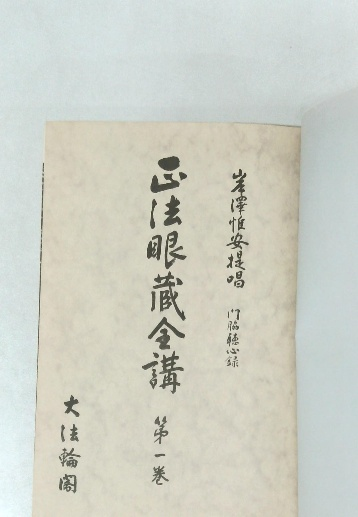 岸澤惟安提唱
門脇聴心録
正法眼蔵全講
第一巻
大法輪閣